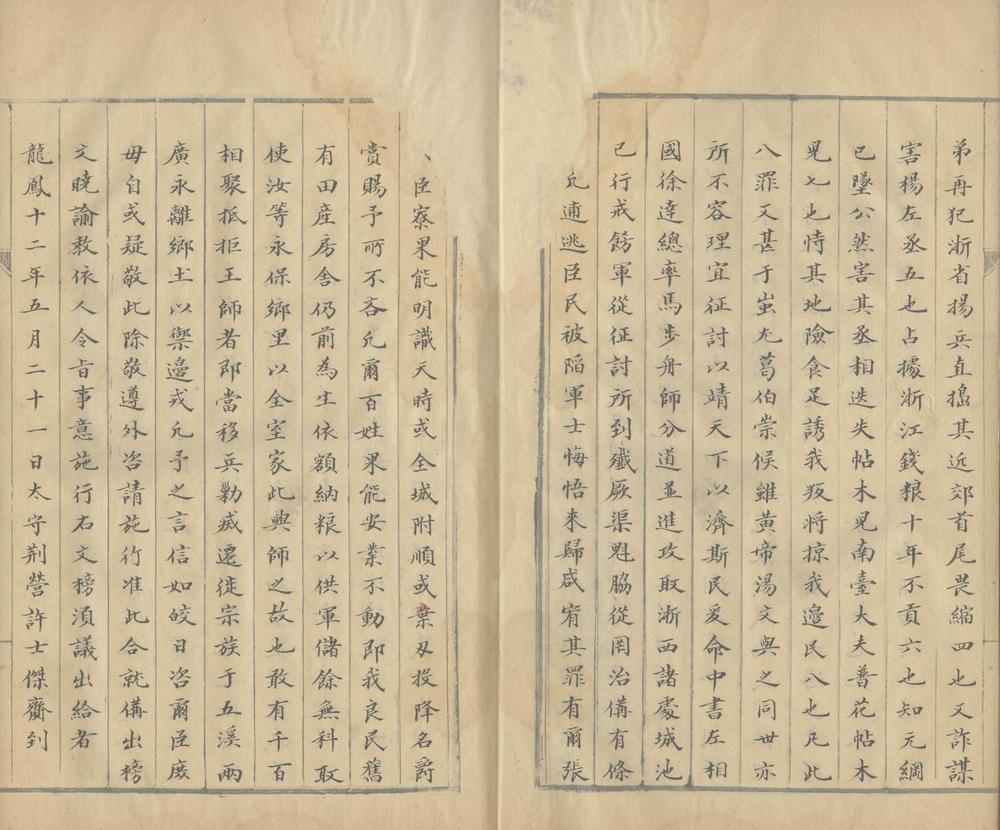 弟再犯浙省揚兵直搗其近郊首尾畏縮四也又詐謀
害楊左丞五也占據浙江錢粮十年不貢六也知元綱
已墜公然害其丞相迭失帖木兒南臺大夫普花帖木
兒七也恃其地險食足誘我叛将掠我邉民八也凡此
八罪又甚于蚩尤葛伯崇侯雖黄帝湯文與之同世亦
所不容理宜征討以靖天下以濟斯民爰命中書左相
國徐逹總率馬步舟師分道並進攻取浙西諸處城池
已行戒飭軍從征討所到殲厥渠魁脇從罔治俻有條
凢逋逃臣民被䧟軍士悔悟来歸咸宥其罪有爾張
臣寮果能明識天時或全城附順或棄刄投降名爵
賞賜予所不吝凢爾百姓果能安業不動即我良民舊
有田產房舍仍前為主依額納粮以供軍儲餘無科取
使汝等永保鄉里以全室家此興師之故也敢有千百
相聚抵拒王師者即當移兵勦滅遷徙宗族于五溪兩
廣永離鄉土以禦邉戎凢予之言信如皎日咨爾臣庻
毋自或疑敬此除敬遵外咨請施行准此合就俻出榜
文曉諭教依人令旨事意施行右文榜湏議出給者
龍鳳十二年五月二十一日太守荆營許士傑齎到